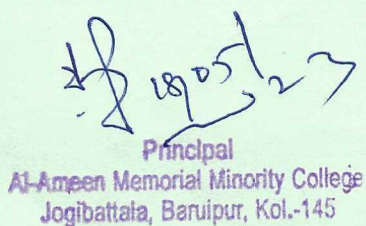 Principal
Al-Ameen Memorial Minority College
Jogibattala, Baruipur, Kol.-145